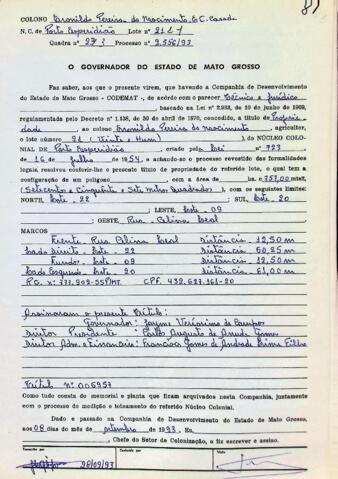 81
COLONO Cronildo Pereira do Nascimento, S.C. Casado
N. C. de Porto Esperidião Lote nº 21
Quadra nº 273 Processo nº 9.556/93
O GOVERNADOR DO ESTADO DE MATO GROSSO
Faz saber, aos que o presente virem, que havendo a Companhia de Desenvolvimento
do Estado de Mato Grosso - CODEMAT -, de acôrdo com o parecer Técnico e Jurídico
baseado na Lei nº 2.933, de 10 de junho de 1969,
regulamentada pelo Decreto nº 1.138, de 30 de abril de 1970, concedido, a título de Proprie
dade, ao colono Cronildo Pereira do Nascimento, agricultor,
o lote número 21 (Vinte e Hum) do NÚCLEO COLO-
NIAL DE Porto Esperidião, criado pela Lei nº 723
de 16 de Julho de 1954, e achando-se o processo revestido das formalidades
legais, resolveu conferir-lhe o presente título de propriedade do referido lote, o qual tem a
configuração de um polígono, com a área de ha. e 757,00 metros,
(Setecentos e Cinquenta e Sete Metros Quadrados), com os seguintes limites:
NORTE, Lote - 22; SUL, Lote - 20
; LESTE, Lote - 09
; OESTE, Rua Olina Leal
MARCOS
Frente - Rua Olina Leal Distância - 12,50 m
Lado Direito - Lote - 22 Distância - 60,25 m
Fundos - Lote - 09 Distância - 12,50 m
Lado Esquerdo - Lote - 20 Distância - 61,00 m
R.G. nº 777.903-SSP/MT. CPF. 432.627.161-20
Assinaram o presente Título:
Governador - Jayme Veríssimo de Campos
Diretor Presidente - Paulo Augusto de Arruda Gomes
Diretor Adm. e Financeiro - Francisco Gomes de Andrade Lima Filho
Título nº 006957
Como tudo consta do memorial e planta que ficam arquivados nesta Companhia, juntamente
com o processo de medição e loteamento do referido Núcleo Colonial.
Dado e passado na Companhia de Desenvolvimento do Estado de Mato Grosso,
aos 08 dias do mês de setembro de 1993. Eu,
, Chefe do Setor de Colonização, o fiz escrever e assino.
Transcrito por
Em
Visto
26/09/93